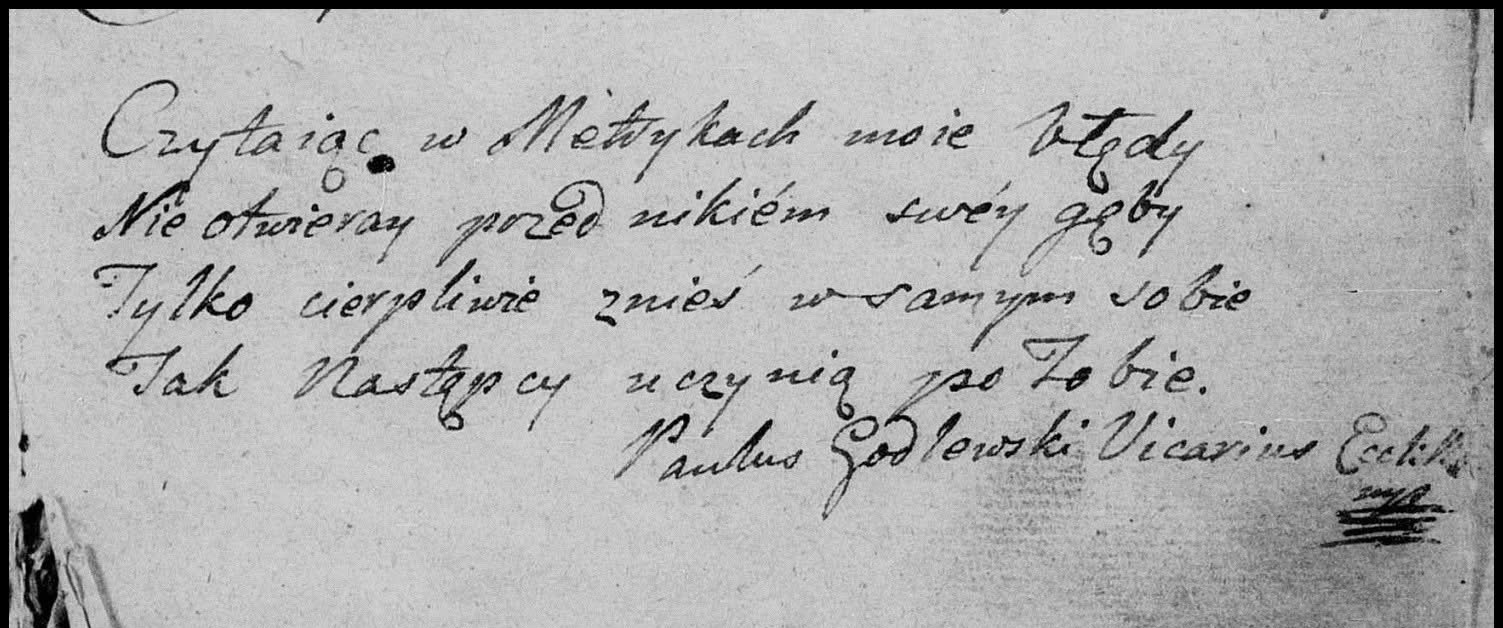 Czytaiąc w Metrykach moie błędy
Nie otwieray przed nikiém swéy gęby
Tylko cierpliwie znieś w samym sobie
Jak Następcy uczynią po Tobie.
Paulus Godlewski Vicarius
mpp